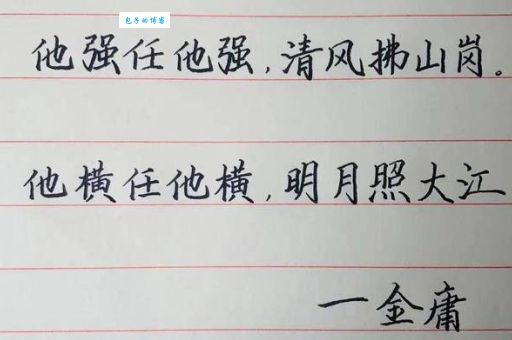 包子的博客
他强任他强,清风拂山岗。
他横任他横,明月照大江
一金庸